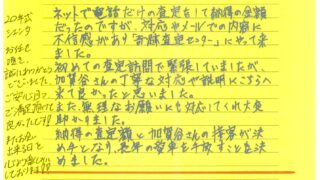 ネットで電話だけの査定をして納得の金額
だったのですが、対応やメールでの内容に
不信感があり「お株査定センター」にやって来
ました。
初めての査定訪問で緊張していましたが、
加賀谷さんの丁寧な対応や説明にこちらへ
来て良かったと思いました。
また、無理なお願いにも対応してくれ大変
助かりました。
納得の査定額と加賀谷さんの接客が決
め手となり、長年の愛車を手放すことを決
めました。
20年式
シエンタ
お任せ
頂き
誠にありがとう
ございました。
ご安心頂けて
ご満足頂けて
良かったです!!
またお会い
出来る日を